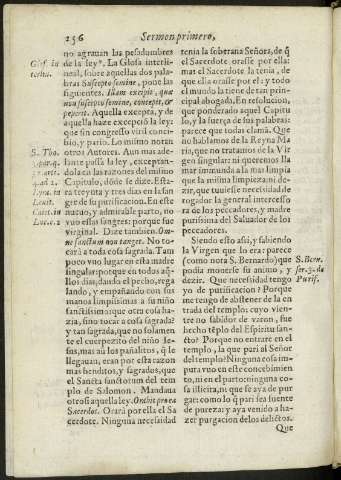 256 Sermon primero,
no agrauan las pesadumbres
de la ley*. La Glosa interli-
neal, sobre aquellas dos pala-
bras Suscepto semine, pone las
siguientes. Illam excepit, quæ
non suscepto semine, concepit, &
peperit. Aquella exceptà, y de
aquella haze excepciõ la ley:
que sin congresso viril conci-
bio, y pario. Lo mismo notan
otros Autores. Aun mas ade-
lante passa la ley, exceptan-
dola en las razones del mismo
Capitulo, dõde se dize. Esta-
ra treynta y tres dias en la san
gre de su purificacion. En este
nueuo, y admirable parto, no
vuo essas sangres: porque fue
virginal. Dize tambien. Om-
ne sanctum non tanget. No to-
carà a toda cosa sagrada. Tam
poco vuo lugar en esta madre
singular: porque en todos aq̃-
llos dias, dando el pecho, rega
lando, y empañando con sus
manos limpissimas a su niño
sanctissimo: que otra cosa ha-
zia, sino tocar a cosa sagrada?
y tan sagrada, que no solamen
te el cuerpezito del niño Ie-
sus, mas aũ los pañalitos, q̃ le
llegauan, eran por esta razon
mas benditos, y sagrados, que
el Sancta sanctorum del tem
plo de Salomon. Mandaua
otrosi aquella ley. Orabit pro ea
Sacerdos. Orarà por ella el Sa
cerdote. Ninguna necesidad
Glos. in
terlin.
S. Tho.
3. par. q.
37. arti.
4. ad 2.
Leuit.
Caiet. in
Luc. c. 2
tenia la soberana Señora, de q̃
el Sacerdote orasse por ella:
mas el Sacerdote la tenia, de
que ella orasse por el: y todo
el mundo la tiene de tan prin
cipal abogada. En resolucion,
que ponderado aquel Capitu
lo, y la fuerça de sus palabras:
parece que todas clamã. Que
no hablamos de la Reyna Ma
ria, que no tratamos de la Vir
gen singular: ni queremos lla
mar immunda a la mas limpia
que la misma limpieza: ni de-
zir, que tuuiesse necesidad de
rogador la general intercesso
ra de los peccadores, y madre
purissima del Saluador de los
peccadores.
Siendo esto assi, y sabiendo
la Virgen que lo era: parece
(como nota S. Bernardo) que
podia mouerse su animo, y
dezir. Que necesidad tengo
yo de purificacion? Porque
me tengo de abstener de la en
trada del templo: cuyo vien-
tre no sabidor de varon, fue
hecho tẽplo del Espiritu san-
cto? Porque no entrarè en el
templo, la que pari al Señor
del templo? Ninguna cosa im-
pura vuo en este concebimien
to, ni en el parto: ninguna co-
sa illicita, ni que se aya de pur
gar: como lo q̃ pari sea fuente
de pureza: y aya venido a ha-
zer purgacion de los delictos.
S. Bern.
ser. 3. de
Purif.
Que